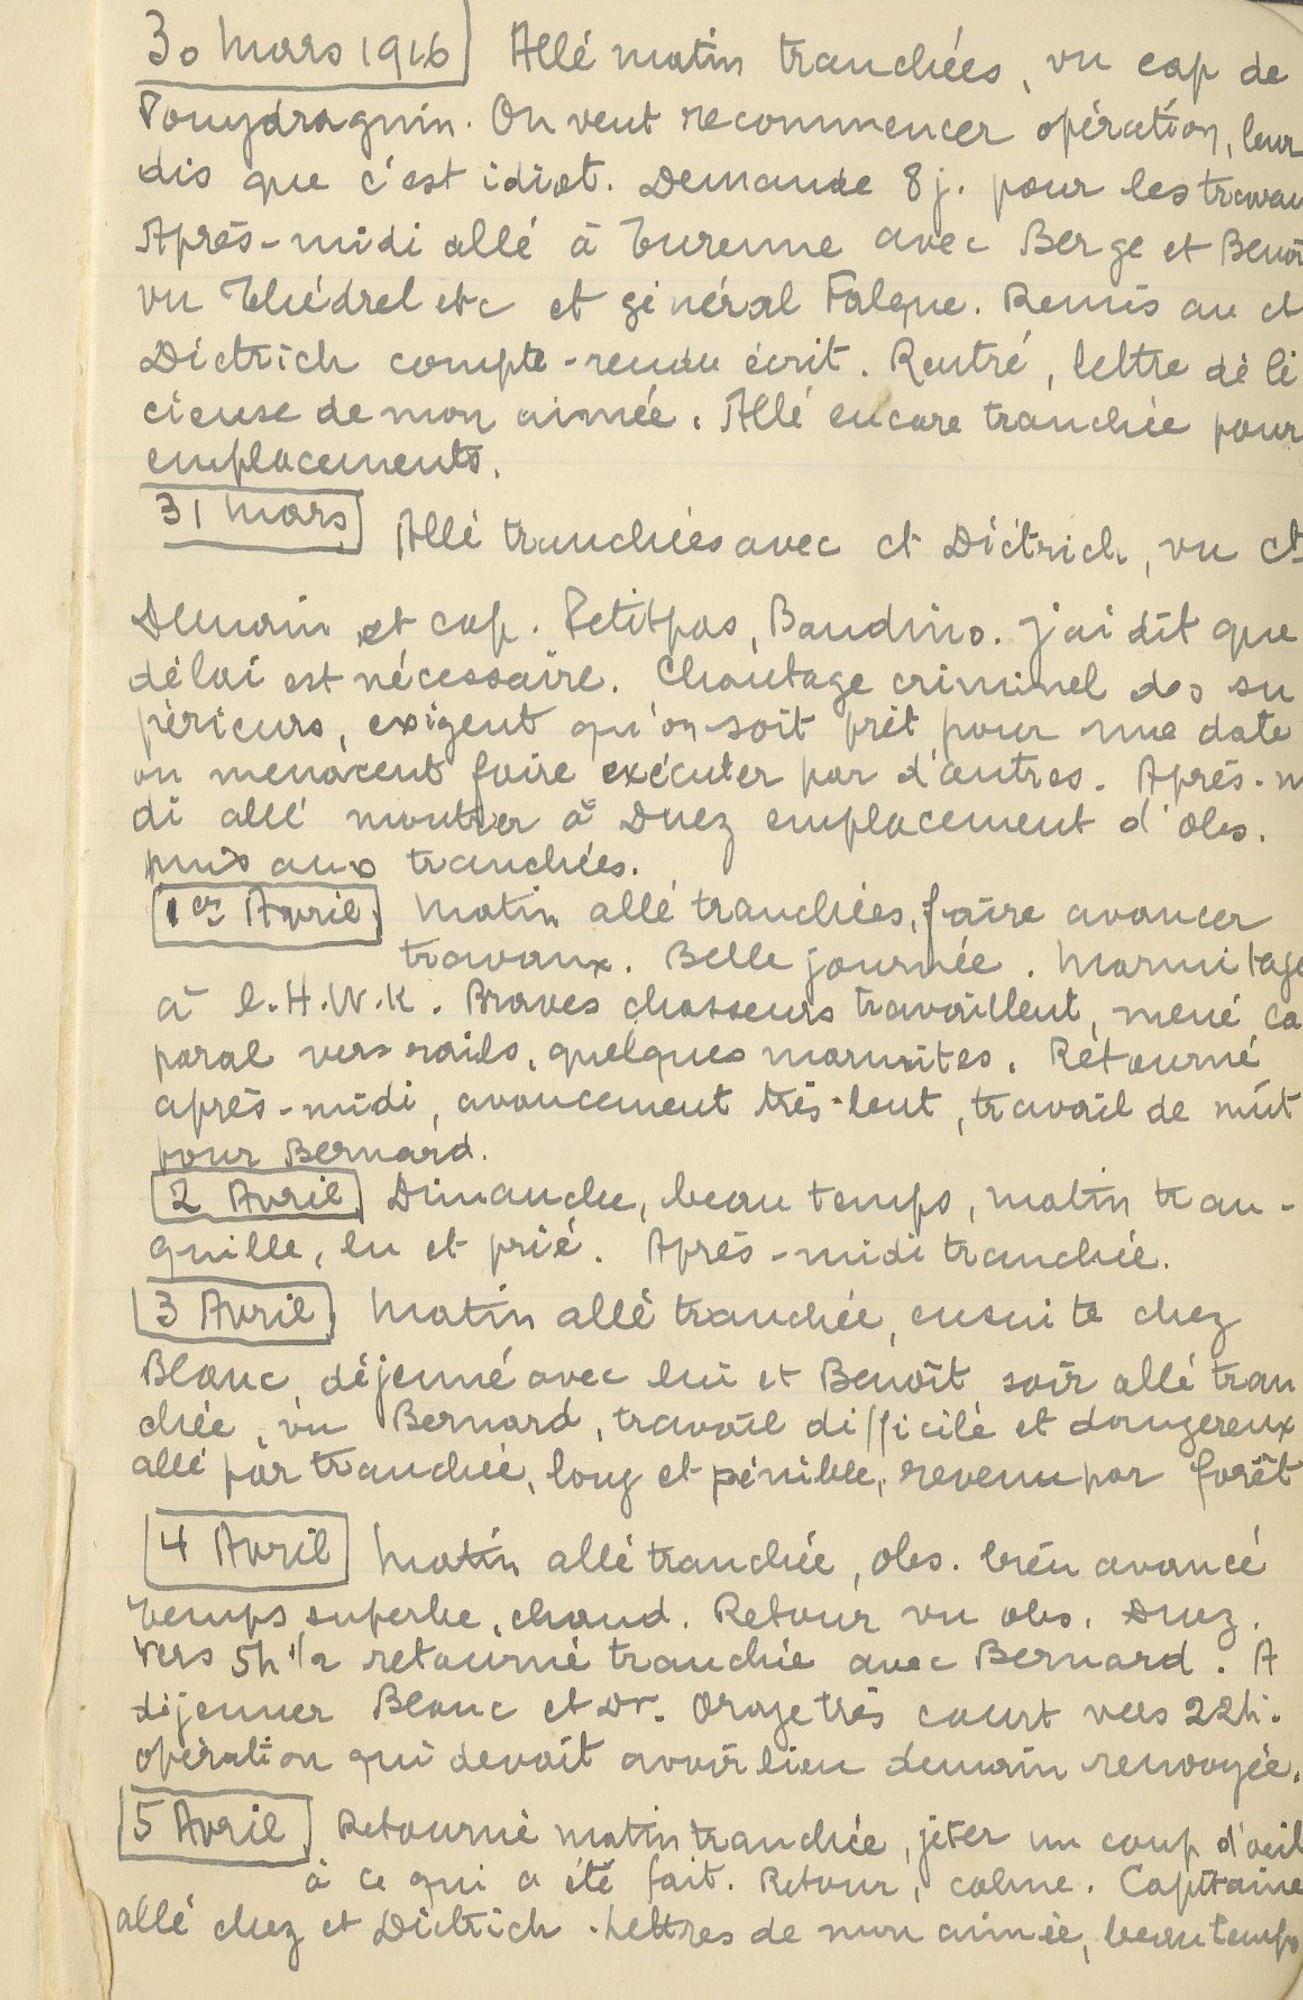 30 Mars 1916 Allé matin tranchées, vu cap de
Pouydraguin. On veut recommencer opération, leur
dis que c'est idiot. Demande 8 j. pour les travau
Après-midi allé à Turenne avec Berge et Benoi
vu Thédrel etc et général Falque. Remis au ct
Diétrich compte-rendu écrit. Rentré, lettre déli
cieuse de mon aimée. Allé encore tranchée pour
emplacements.
31 Mars Allé tranchées avec ct Diétrich, vu ct
Demain et cap. Petitpas, Baudino. J'ai dit que
délai est nécessaire. Chantage criminel des su
périeurs, exigent qu'on soit prêt pour une date
ou menacent faire exécuter par d'autres. Après-m
di allé montrer à Duez emplacement d'obs.
puis aux tranchées.
1er Avril Matin allé tranchées, faire avancer
travaux. Belle journée. Marmitage
à l'H.W.K. Braves chasseurs travaillent, mené ca
poral vers rails, quelques marmites. Retourné
après-midi, avancement très-lent, travail de nuit
pour Bernard.
2 Avril Dimanche, beau temps, matin tran-
quille, lu et prié. Après-midi tranchée.
3 Avril Matin allé tranchée, ensuite chez
Blanc, déjeuné avec lui et Benoît soir allé tran
chée, vu Bernard, travail difficile et dangereux
allé par tranchée, long et pénible, revenu par forêt
4 Avril Matin allé tranchée, obs. bien avancé
Temps superbe, chaud. Retour vu obs. Duez.
Vers 5h 1/2 retourné tranchée avec Bernard. A
déjeuner Blanc et Dr. Orage très court vers 22h.
opération qui devait avoir lieu demain renvoyée.
5 Avril Retourné matin tranchée, jeter un coup d'oeil
à ce qui a été fait. Retour, calme. Capitaine
allé chez ct Diétrich. Lettres de mon aimée, beau temps